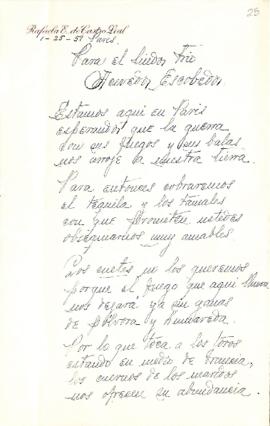 25
Rafaela E. de Castro Leal
1-25-51 Paris.
Para el lindo trio
Acevedo Escobedo.
Estamos aqui en Paris
esperando que la guerra
con sus fuegos y sus balas
nos arroje a nuestra tierra.
Para entonces cobraremos
el tequila y los tamales
con que prometen ustedes
obsequiarnos muy amables
Los cuetes no los queremos
porque el fuego que aqui
nos dejará ya sin ganas
de pólvora y humareda.
Por lo que toca a los toros
estando en medio de Francia,
los cuernos de los maridos
nos ofrecen su abundancia.